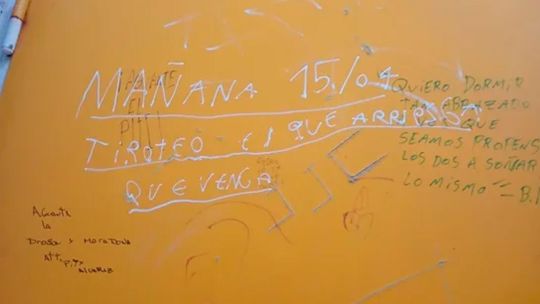 MAÑANA 15/04
TIROTEO EL QUE ARRIPADA
QUE VENGA
AGUANTE
EL
QUIERO DORMIR
TAN ABRAZADO
QUE
SEAMOS PROPENS
LOS DOS A SOÑAR
LO MISMO" - B.I
AGUANTE
LA
Droga y Maradona
Att:
Pity
ALVAREZ